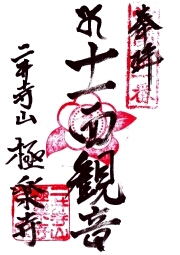 奉拝
十一面観音
二井寺山 極楽寺